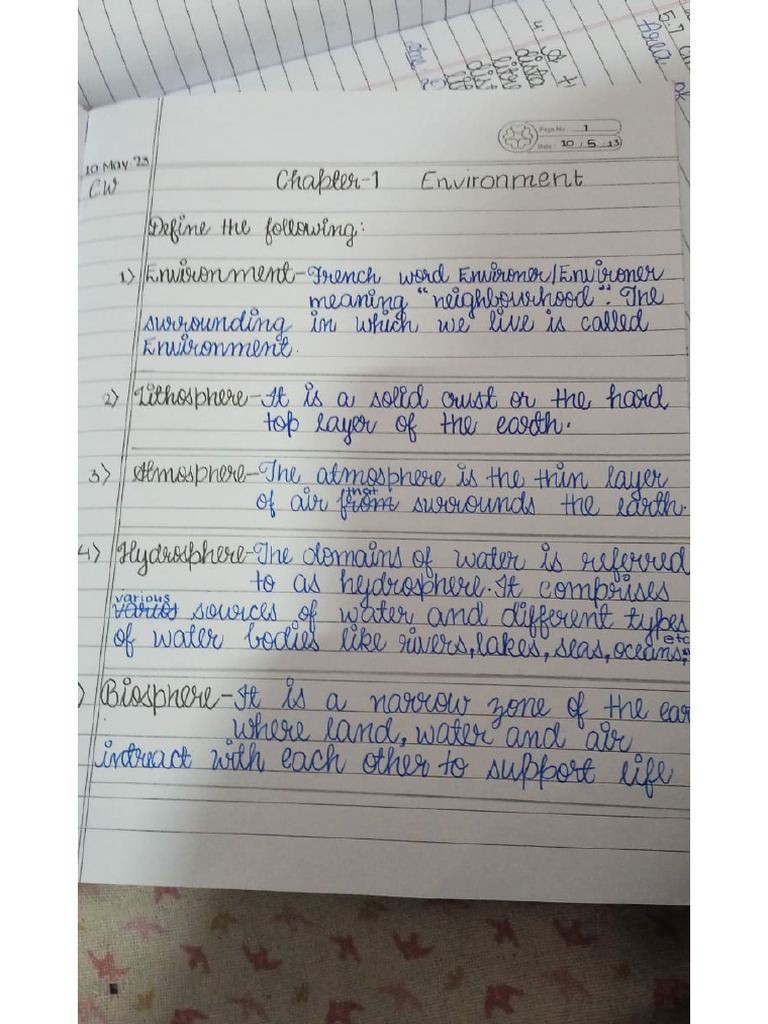 5.7
Area of
4.
Page No. 1
Date: 10 . 5 . 23
10 May. 23
C.W
Chapter-1 Environment
Define the following:
1) Environment-French word Environer/Environer
meaning "neighbourhood". The
surrounding in which we live is called
Environment.
2) Lithosphere-It is a solid crust or the hard
top layer of the earth.
3) Atmosphere-The atmosphere is the thin layer
that
of air from surrounds the earth.
4) Hydrosphere-The domains of water is referred
to as hydrosphere. It comprises
various
varios sources of water and different types
of water bodies like rivers, lakes, seas, oceans, etc
) Biosphere-It is a narrow zone of the ear
where land, water and air
intreact with each other to support life